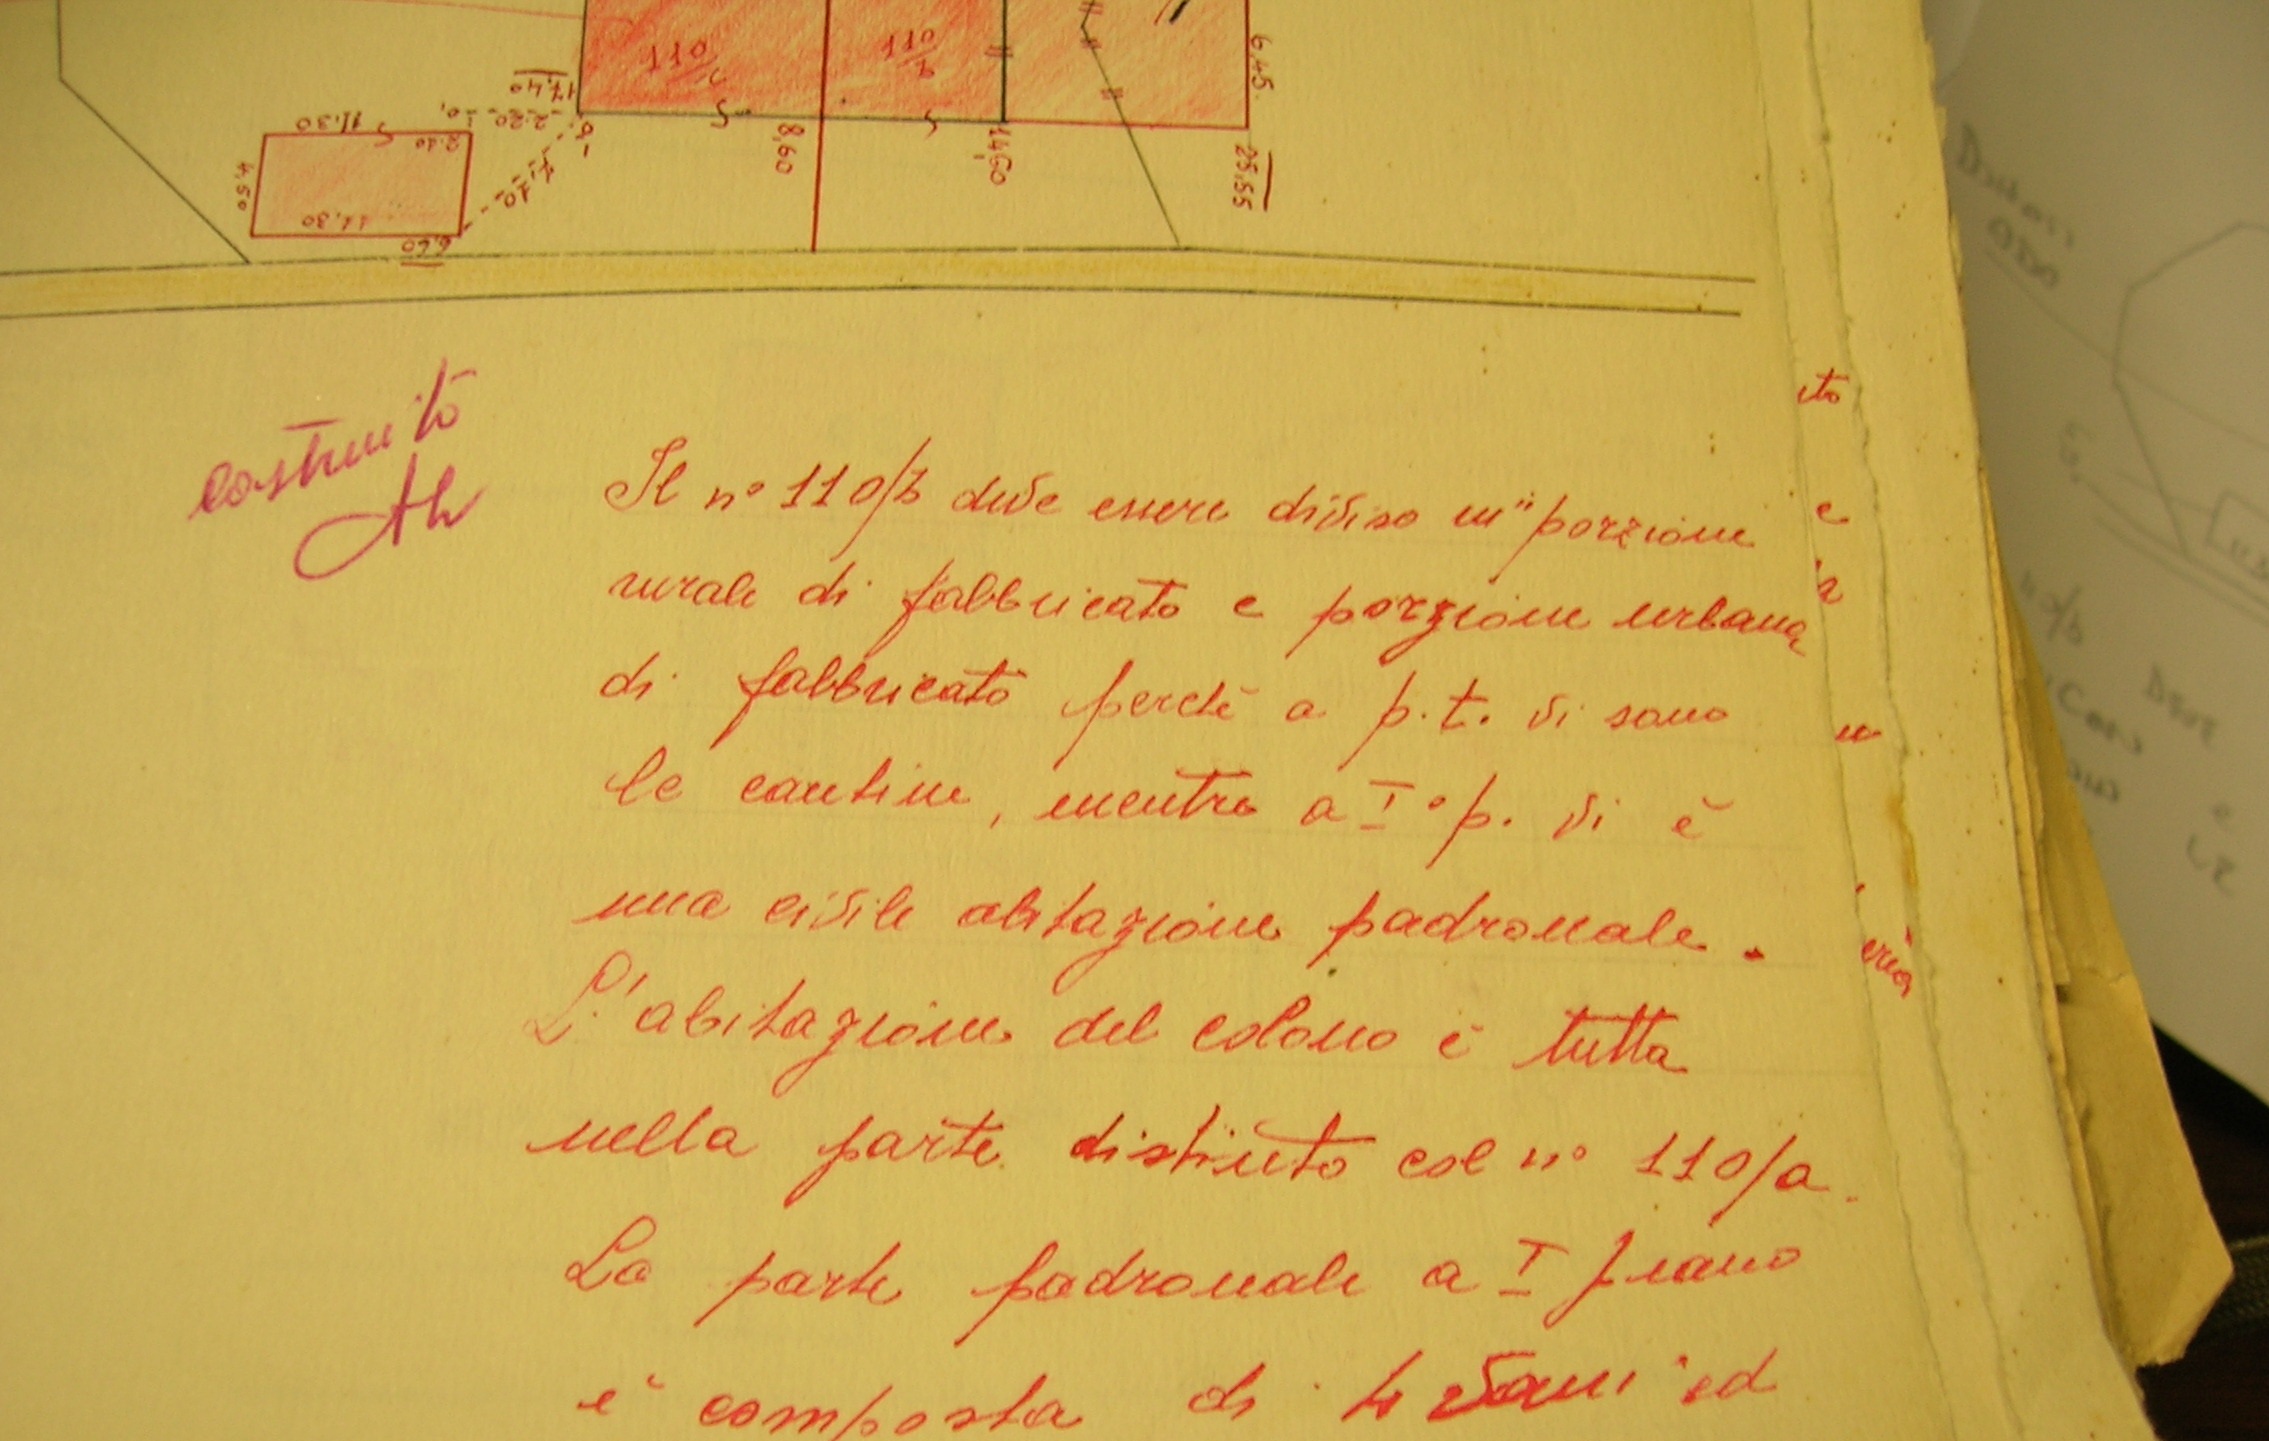 110/
110/
6,45
17,40
2.20
11.30
2.20
4.50
11.30
6,60
7.70
8,60
14,60
25,55
costruito
Il n° 110/b deve essere diviso in "porzione
rurale di fabbricato e porzione urbana
di fabbricato perchè a p.t. vi sono
le cantine, mentre a I° p. vi è
una civile abitazione padronale.
L'abitazione del colono è tutta
nella parte distinto col n° 110/a.
La parte padronale a I piano
è composta di 4 vani ed